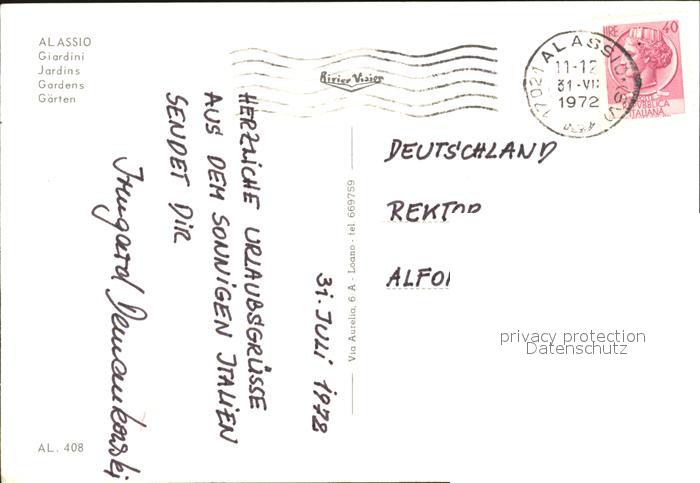 ALASSIO
Giardini
Jardins
Gardens
Gärten
AL. 408
Rivier Vision
17021 ALASSIO (SV)
11-12
31-VII
1972
LIRE 40
REPUBBLICA
ITALIANA
31. JULI 1972
HERZLICHE URLAUBSGRÜSSE
AUS DEM SONNIGEN ITALIEN
SENDET DIR
Irmgard
Via Aurelia, 6 A - Loano - tel. 669759
DEUTSCHLAND
REKTOR
ALFO
privacy protection
Datenschutz